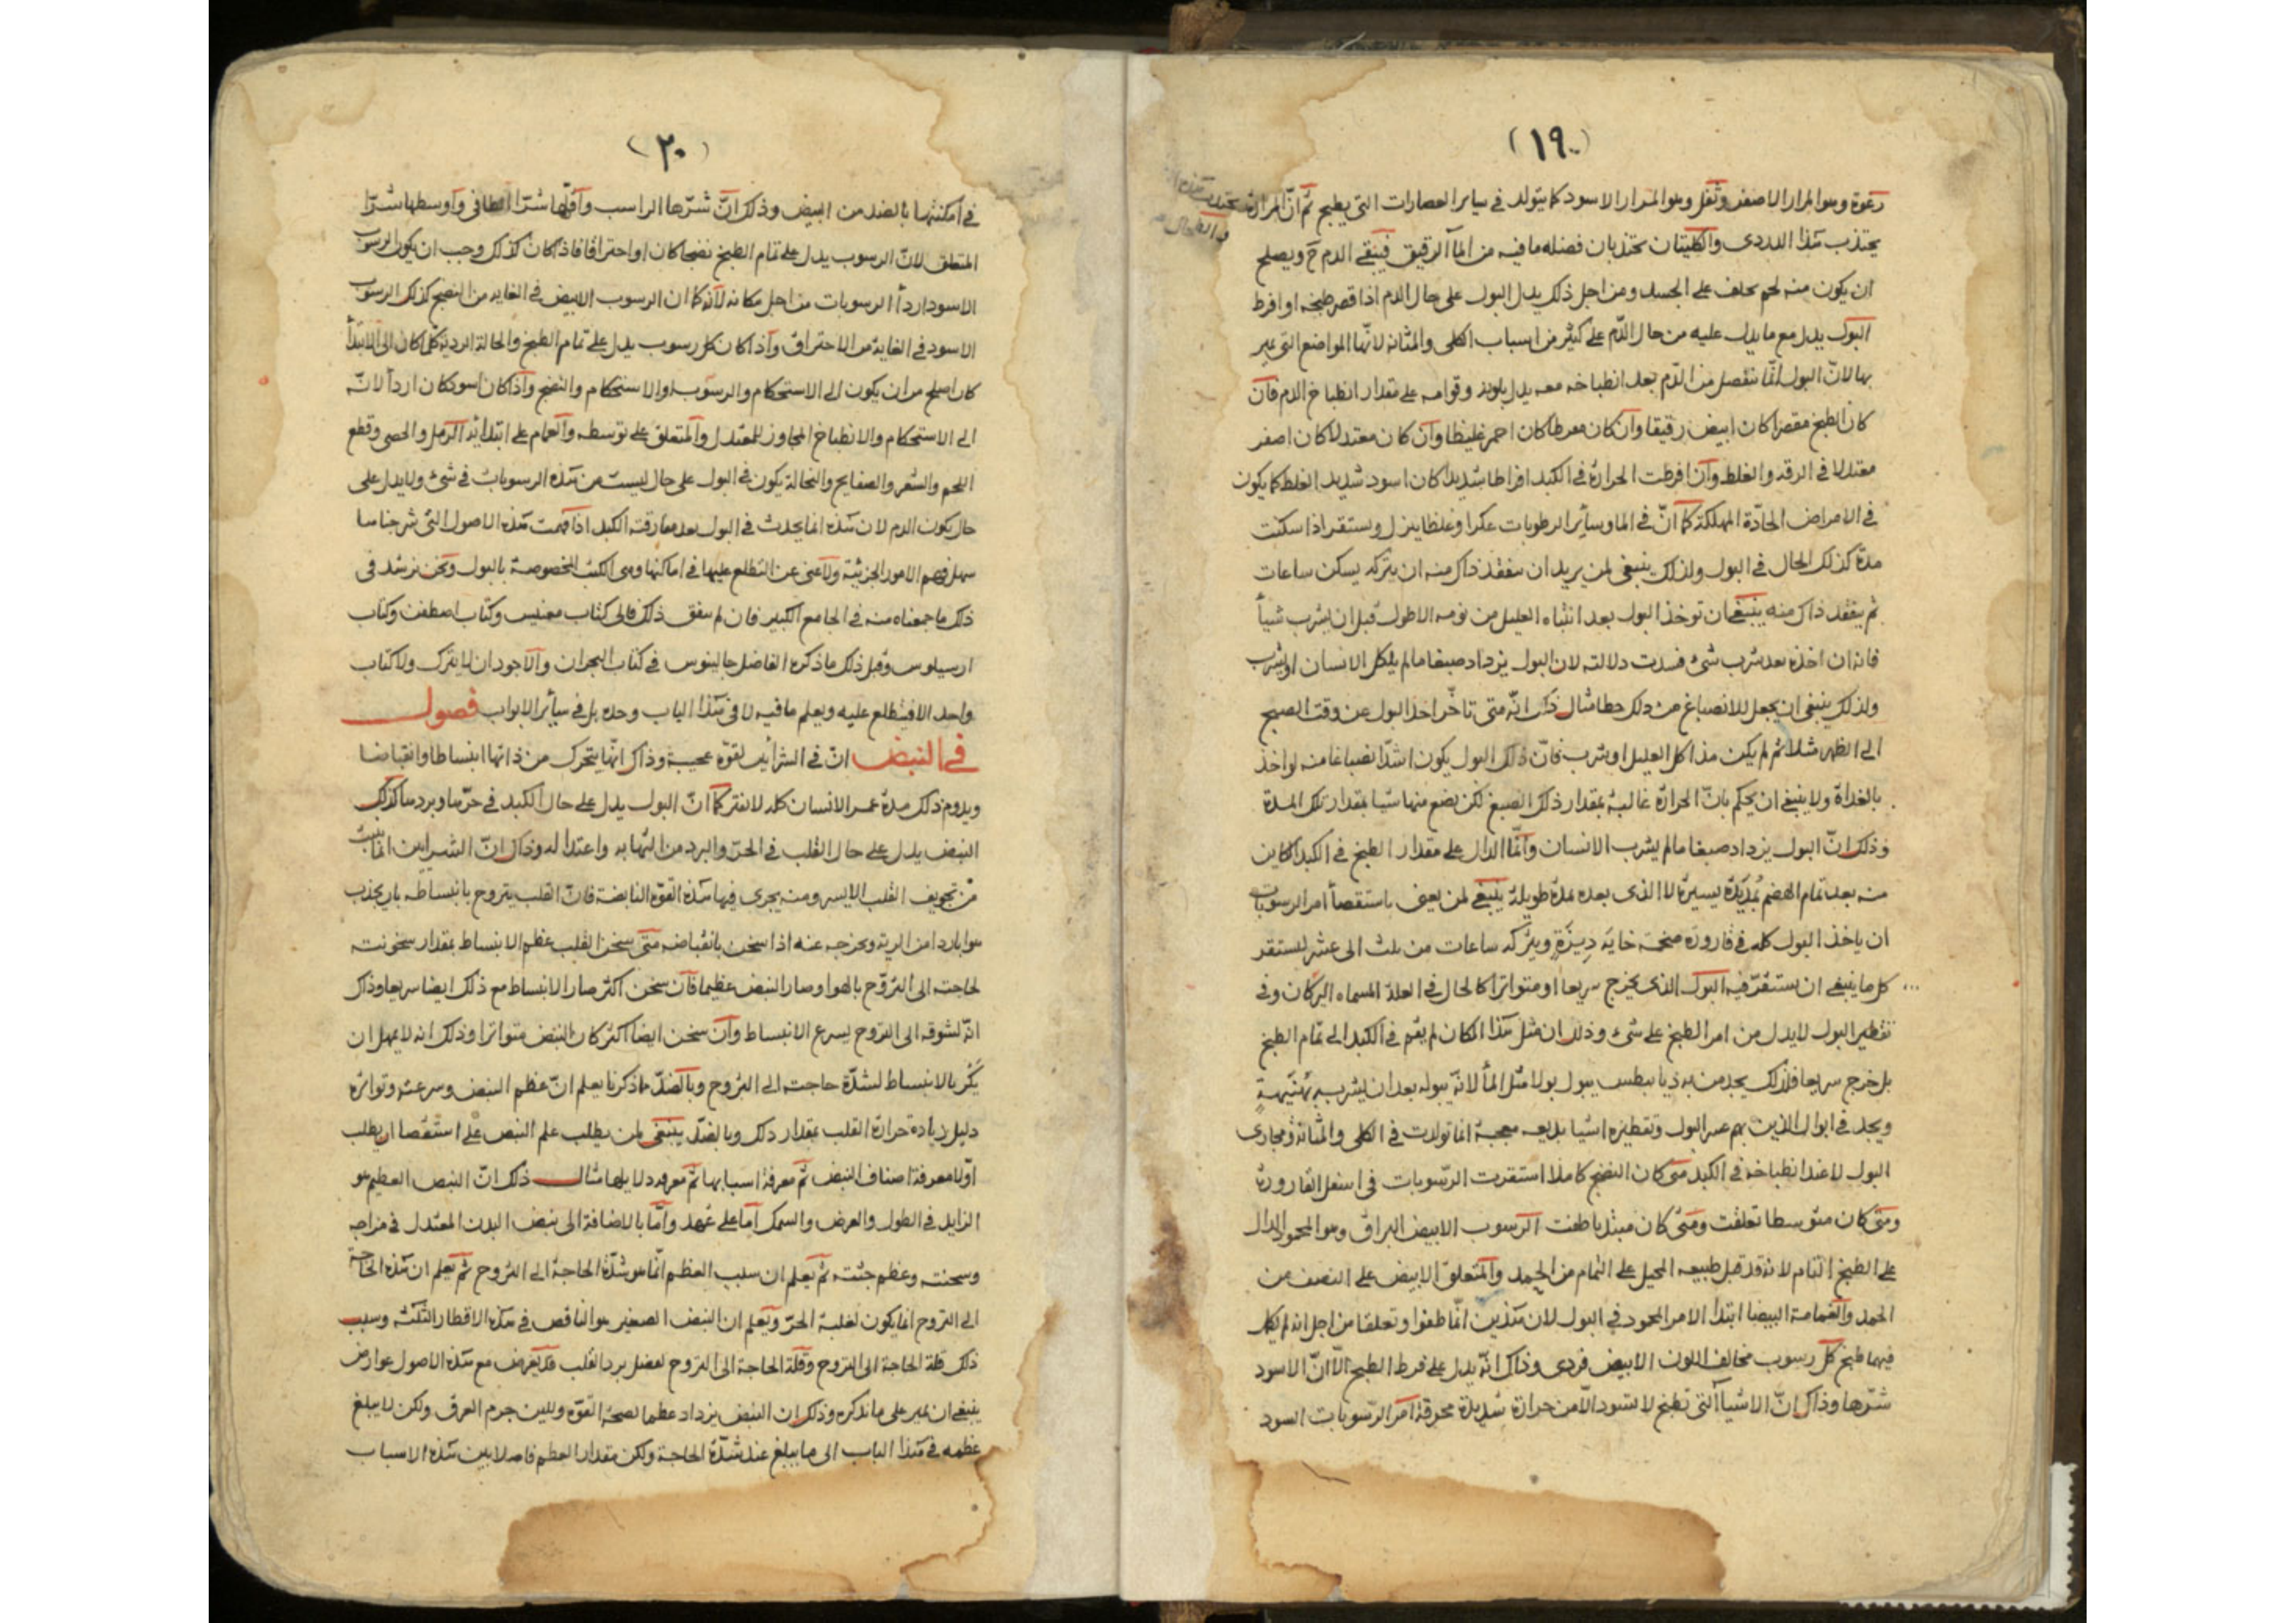 (١٩)
رغوة وهو المرار الاصفر وثفل وهو المرار الاسود كما يتولد في سائر العصارات التي يطبخ ثم ان المرارة تجتذب هذه
والطحال
يجتذب هذا الدردى والكليتان تجتذبان فضله ما فيه من الماء الرقيق فينقى الدم ح ويصلح
ان يكون منه لحم يخلف على الجسد ومن اجل ذلك يدل البول على حال الدم اذا قصر طبخه او افرط
البول يدل مع ما يدل عليه من حال الدم على كثير من اسباب الكلى والمثانة لانها المواضع التي عبر
بها لان البول انما ينفصل من الدم بعد انطباخه معه يدل بلونه وقوامه على مقدار انطباخ الدم فان
كان الطبخ مقصرا كان ابيض رقيقا وان كان مفرطا كان احمر غليظا وان كان معتدلا كان اصفر
معتدلا في الرقة والغلظ وان افرطت الحرارة في الكبد افراطا شديدا كان اسود شديد الغلظ كما يكون
في الامراض الحادة المهلكة كما ان في الماء وسائر الرطوبات عكرا وغلظا ينزل ويستقر اذا سكنت
مدة كذلك الحال في البول ولذلك ينبغي لمن يريد ان يتفقد ذاك منه ان يتركه يسكن ساعات
ثم يتفقد ذاك منه ينبغي ان توخذ البول بعد انتباه العليل من نومه الاطول قبل ان يشرب شيأ
فانه ان اخذه بعد شرب شئ فسدت دلالته لان البول يزداد صبغا ما لم ياكل الانسان او يشرب
ولذلك ينبغي ان يجعل للانصباغ من ذلك حظا مثال ذلك انه متى تاخر اخذ البول عن وقت الصبح
الى الظهر مثلا ثم لم يكن هذا كل العليل او شرب فان ذلك البول يكون اشد انصباغا منه لو اخذ
بالغداة ولا ينبغي ان يحكم بان الحرارة غالبة بمقدار ذلك الصبغ لكن يضع منها شيا بمقدار تلك المدة
وذلك ان البول يزداد صبغا ما لم يشرب الانسان وانما الدال على مقدار الطبخ في الكبد الكاين
منه بعد تمام الهضم بمديدة يسيرة لا الذى بعده بمدة طويلة ينبغي لمن يعنى باستقصأ امر الرسوبات
ان ياخذ البول كله في قارورة ويتركه ساعات من ثلث الى عشر ليستقر
كل ما ينبغي ان يستقر فيه البول الذى يخرج سريعا او متواترا كالحال في العلة المسماه البركان وفى
تقطير البول لا يدل من امر الطبخ على شئ وذلك ان مثل هذا المكان لم يقم في الكبد الى تمام الطبخ
بل خرج سريعا فلذلك يجد من به ذيابيطس يبول بولا مثل المأ لانه يبوله بعد ان يشربه
ويجد في ابوال الذين بهم عسر البول وتقطيره اشيا بديعه عجيبة انما تولدت في الكلى والمثانة ومجارى
البول لا عند انطباخه في الكبد متى كان النضج كاملا استقرت الرسوبات في اسفل القارورة
ومتى كان متوسطا تعلقت ومتى كان مبتديا طفت الرسوب الابيض البراق وهو المحمود الدال
على الطبخ التام لانه قد قبل طبيعه المحيل على التمام من الحمد والمتعلق الابيض على النصف من
الحمد والغمامة البيضا ابتدأ الامر المحمود في البول لان هذين انما طفوا وتعلقا من اجل انه لم يكمل
فيهما طبخ كل رسوب مخالف اللون الابيض فردى وذاك انه يدل على فرط الطبخ الا ان الاسود
شرها وذاك ان الاشيأ التي تطبخ لا تسود الا من حرارة شديدة محرقة امر الرسوبات السود
(٢٠)
في امكنتها بالضد من البيض وذلك ان شرها الراسب واقلها شرا الطافى واوسطها شرا
المتعلق لان الرسوب يدل على تمام الطبخ نضجا كان او احتراقا فاذ كان كذلك وجب ان يكون الرسوب
الاسود اردأ الرسوبات من اجل مكانه لانه كما ان الرسوب الابيض في الغايه من النضج كذلك الرسوب
الاسود في الغاية من الاحتراق واذا كان كل رسوب يدل على تمام الطبخ والحالة الردية كلما كان الى الابتدأ
كان اصلح من ان يكون الى الاستحكام والرسوب او الاستحكام والنضج واذا كان اسود كان اردأ لانه
الى الاستحكام والانطباخ المجاوز للمعتدل والمتعلق على توسطه والغمام على ابتدائه الرمل والحصى وقطع
اللحم والشعر والصفايح والنخالة يكون في البول على حال ليست من هذه الرسوبات في شئ ولا يدل على
حال يكون الدم لان هذه انما يحدث في البول بعد مفارقته الكبد اذا فهمت هذه الاصول التي شرحناها
سهل فهم الامور الجزئية ولا غنى عن التطلع عليها في اماكنها وهى الكتب المخصوصة بالبول ونحن نرشد فى
ذلك ما جمعناه منه في الجامع الكبير فان لم يتفق ذلك فالى كتاب مغنيس وكتاب اصطفن وكتاب
ارسيلوس وقبل ذلك ما ذكره الفاضل جالينوس في كتاب البحران والاجود ان لا يترك ولا كتاب
واحد الا فيتطلع عليه ويعلم ما فيه لا في هذا الباب وحده بل في سائر الابواب فصول
في النبض ان في الشرائين لقوة عجيبة وذاك انها يتحرك من ذاتها انبساطا وانقباضا
ويدوم ذلك مدة عمر الانسان كله لا تفتر كما ان البول يدل على حال الكبد في حرها وبردها كذلك
النبض يدل على حال القلب في الحر والبرد من التهابه واعتداله وذاك ان الشرايين انما تنبت
من تجويف القلب الايسر ومنه يجرى فيها هذه القوة النابضة فان القلب يتروح بانبساطه بان يجذب
هوا باردا من الرية ويخرجه عنه اذا سخن بانقباضه متى سخن القلب عظم الانبساط بمقدار سخونته
لحاجته الى التروح بالهوا وصار النبض عظيما فان سخن اكثر صار الانبساط مع ذلك ايضا سريعا وذاك
انه لشوقه الى التروح يسرع الانبساط وان سخن ايضا اكثر كان النبض متواترا وذلك انه لا يمهل ان
يكر بالانبساط لشدة حاجته الى التروح وبالضد ما ذكرنا يعلم ان عظم النبض وسرعته وتواتره
دليل زيادة حرارة القلب بمقدار ذلك وبالضد ينبغي لمن يطلب علم النبض على استقصا ان يطلب
اولا معرفة اصناف النبض ثم معرفة اسبابها ثم معرفه دلايلها مثال ذلك ان النبض العظيم هو
الزايد في الطول والعرض والسمك اما على عهد واما بالاضافة الى نبض البدن المعتدل في مزاجه
وسحنته وعظم جثته ثم يعلم ان سبب العظم انما هو شدة الحاجة الى التروح ثم يعلم ان هذه الحاجة
الى التروح انما يكون لغلبة الحر ويعلم ان النبض الصغير هو الناقص في هذه الاقطار الثلثه وسبب
ذلك قلة الحاجة الى التروح وقلة الحاجة الى التروح لفضل برد القلب مع هذه الاصول عوارض
ينبغي ان على ما نذكره وذلك ان النبض يزداد عظما لصحة القوة وللين جرم العرق ولكن لا يبلغ
عظمه في هذا الباب الى ما يبلغ عند شدة الحاجة ولكن مقدار العظم فاصلا بين هذه الاسباب